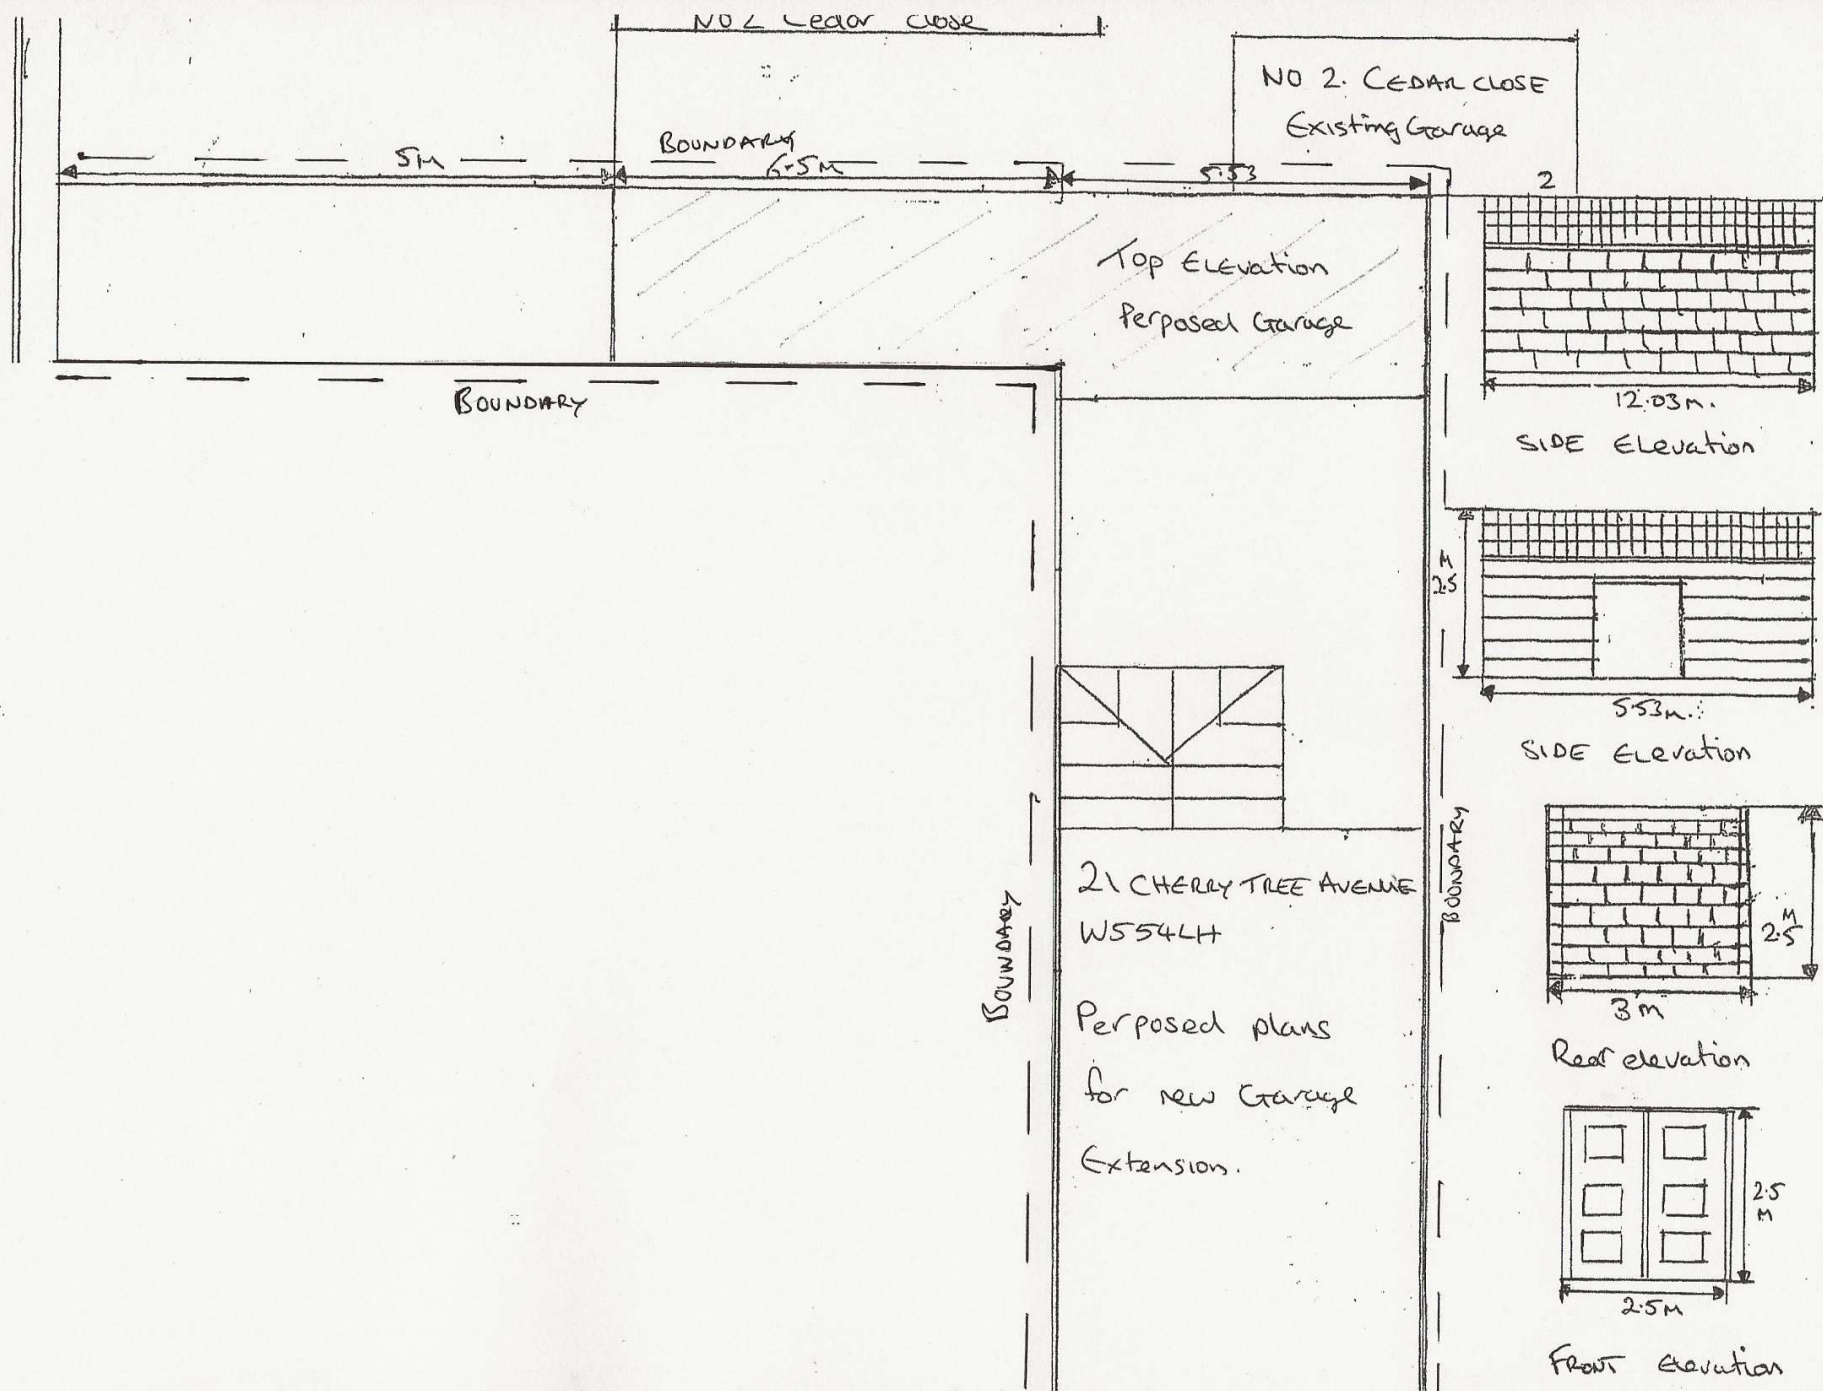 NO 2 Cedar Close
NO 2. CEDAR CLOSE
Existing Garage
BOUNDARY
5M
6.5M
5.53
2
Top ELEVATION
Perposed Garage
BOUNDARY
12.03M.
SIDE ELEVATION
M
2.5
5.53M.
SIDE ELEVATION
BOUNDARY
BOUNDARY
21 CHERRY TREE AVENUE
WS54LH
Perposed plans
for new Garage
Extension.
M
2.5
3M
Rear elevation
2.5
M
2.5M
FRONT Elevation